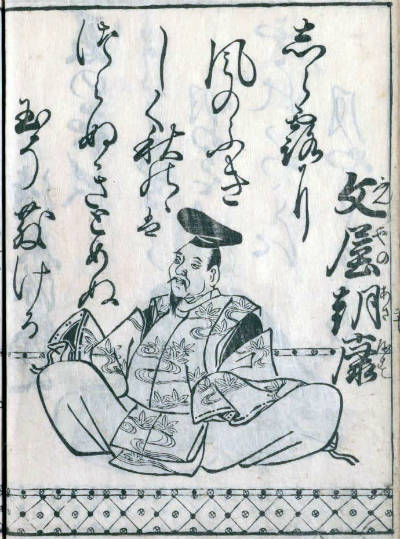 文屋朝康
しら露に
風のふき
しく秋のゝは
つらぬきとめぬ
玉そ散ける